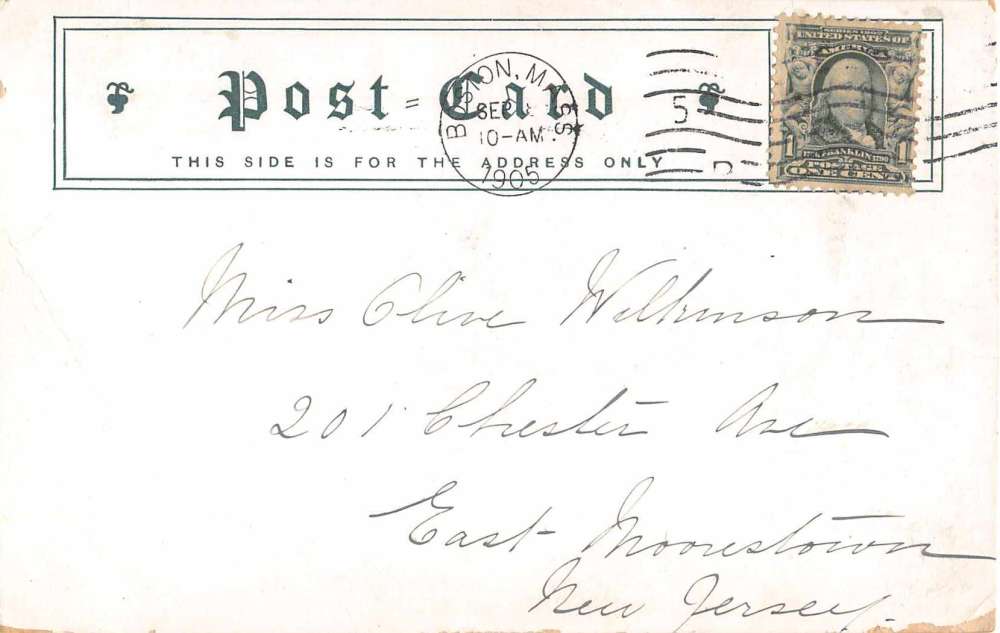 Post = Card
THIS SIDE IS FOR THE ADDRESS ONLY
BOSTON, MASS.
SEP
10-AM
1905
5
D
SERIES 1902
UNITED STATES OF
AMERICA
1 FRANKLIN 1790 1
POSTAGE
ONE CENT
Miss Olive Wilkinson
201 Chester Ave
East Moorestown
New Jersey.